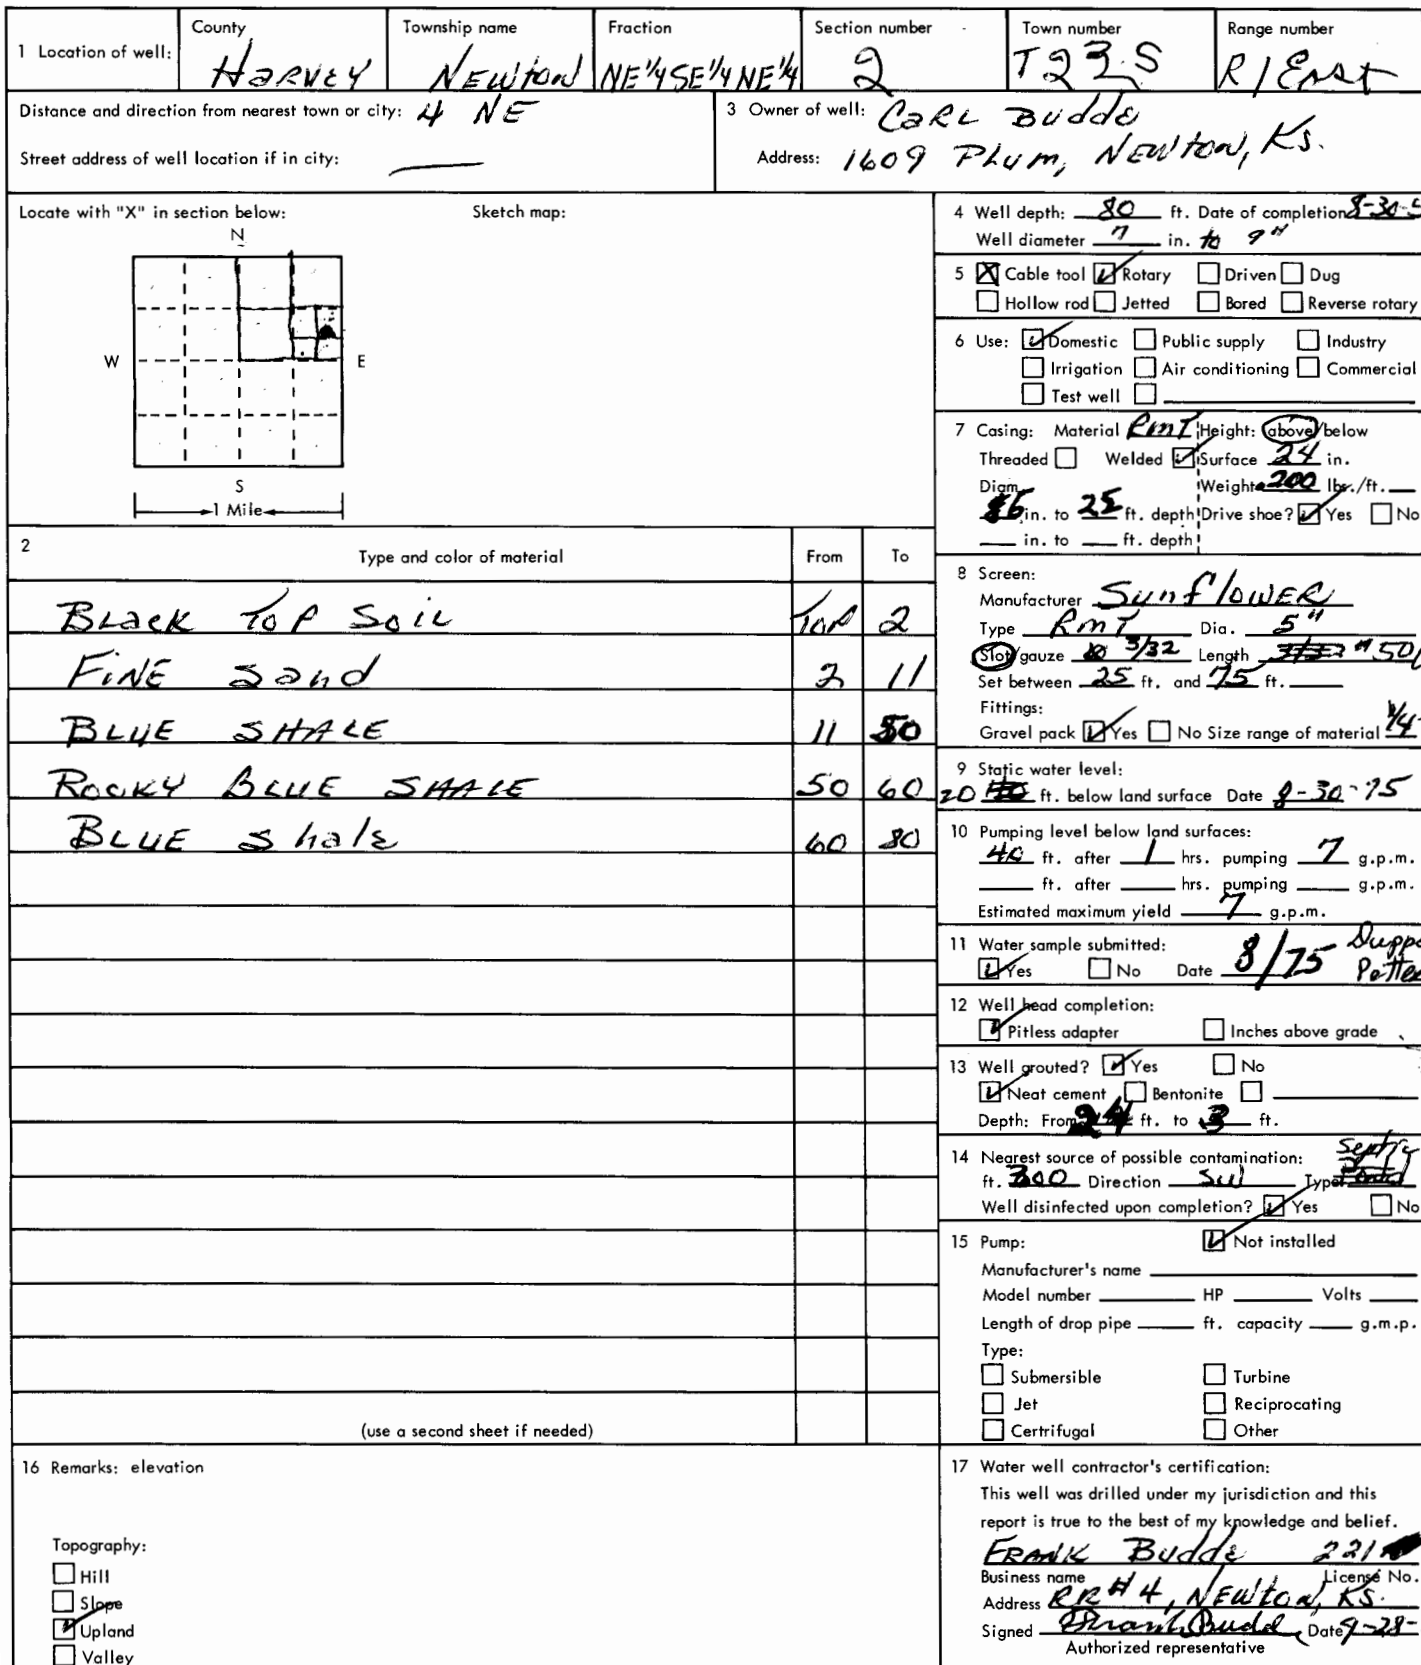 1 Location of well: County HARVEY Township name NEWTON Fraction NE¼SE¼NE¼ Section number 2 Town number T23S Range number R1East
Distance and direction from nearest town or city: 4 NE
Street address of well location if in city: —
3 Owner of well: CARL Budde
Address: 1609 Plum, NEWTON, Ks.
Locate with "X" in section below: Sketch map:
N
W E
S
1 Mile
2 Type and color of material From To
BLack Top Soil TOP 2
FiNE Sand 2 11
BLUE SHALE 11 50
ROCKY BLUE SHALE 50 60
BLUE Shale 60 80
(use a second sheet if needed)
4 Well depth: 80 ft. Date of completion 8-30-
Well diameter 7 in. to 9"
5 Cable tool Rotary Driven Dug
Hollow rod Jetted Bored Reverse rotary
6 Use: Domestic Public supply Industry
Irrigation Air conditioning Commercial
Test well
7 Casing: Material RMT Height: above/below
Threaded Welded Surface 24 in.
Diam. Weight 200 lbs./ft.
6 in. to 25 ft. depth Drive shoe? Yes No
in. to ft. depth
8 Screen:
Manufacturer Sunflower
Type RMT Dia. 5"
Slot/gauze 3/32 Length 50
Set between 25 ft. and 75 ft.
Fittings:
Gravel pack Yes No Size range of material 1/4
9 Static water level:
20 ft. below land surface Date 8-30-75
10 Pumping level below land surfaces:
40 ft. after 1 hrs. pumping 7 g.p.m.
ft. after hrs. pumping g.p.m.
Estimated maximum yield 7 g.p.m.
11 Water sample submitted:
Yes No Date 8/75
12 Well head completion:
Pitless adapter Inches above grade
13 Well grouted? Yes No
Neat cement Bentonite
Depth: From 24 ft. to 3 ft.
14 Nearest source of possible contamination: Septic
ft. 300 Direction SW Type
Well disinfected upon completion? Yes No
15 Pump: Not installed
Manufacturer's name
Model number HP Volts
Length of drop pipe ft. capacity g.m.p.
Type:
Submersible Turbine
Jet Reciprocating
Certrifugal Other
16 Remarks: elevation
Topography:
Hill
Slope
Upland
Valley
17 Water well contractor's certification:
This well was drilled under my jurisdiction and this
report is true to the best of my knowledge and belief.
FRANK Budde 221
Business name License No.
Address RR#4, NEWTON, KS.
Signed Frank Budde Date 9-28-
Authorized representative